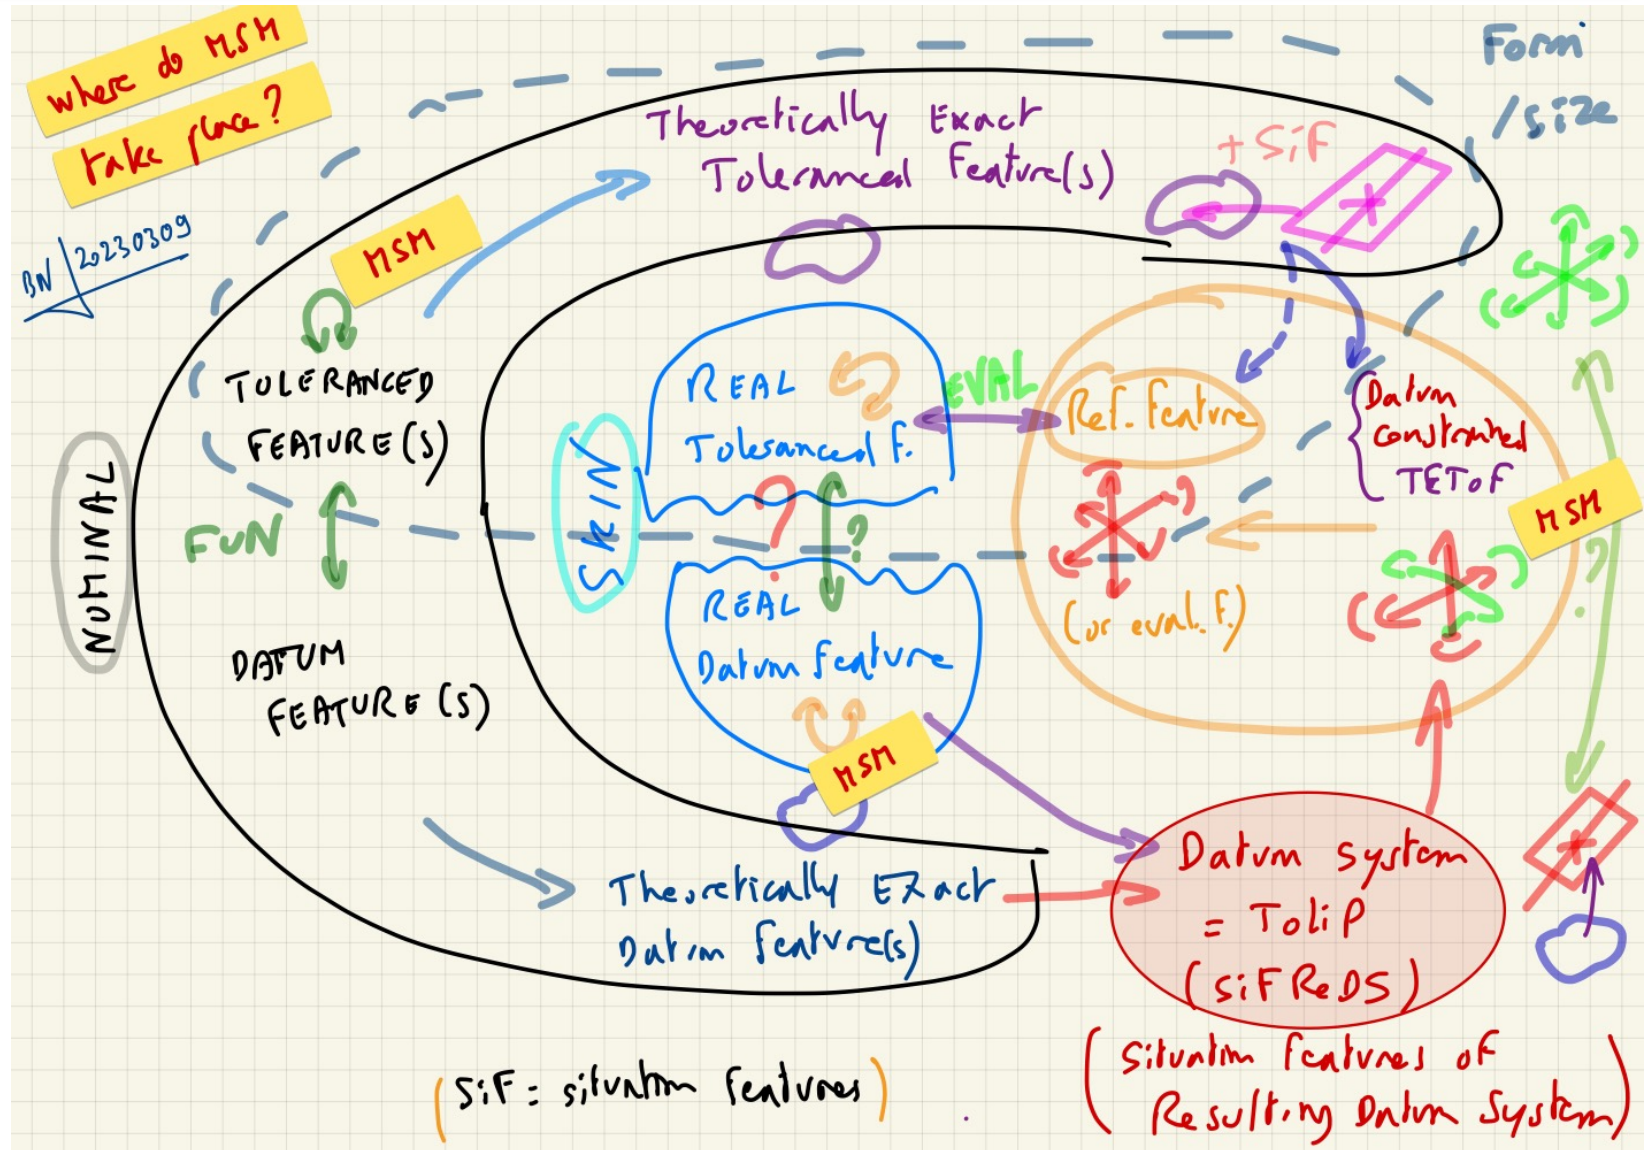 where do MSM
take place?
BN/20230309
Form
/size
Theoretically Exact
Toleranced Feature(s)
+ SiF
MSM
TOLERANCED
FEATURE(S)
FUN
NOMINAL
DATUM
FEATURE(S)
SKIN
REAL
Toleranced F.
EVAL
Ref. Feature
Datum
constrained
TEToF
MSM
?
?
?
REAL
Datum Feature
(or eval. F.)
MSM
Theoretically EXact
Datum Feature(s)
Datum system
= ToliP
(SiFReDS)
(Situation features of
Resulting Datum System)
(SiF = situation features)